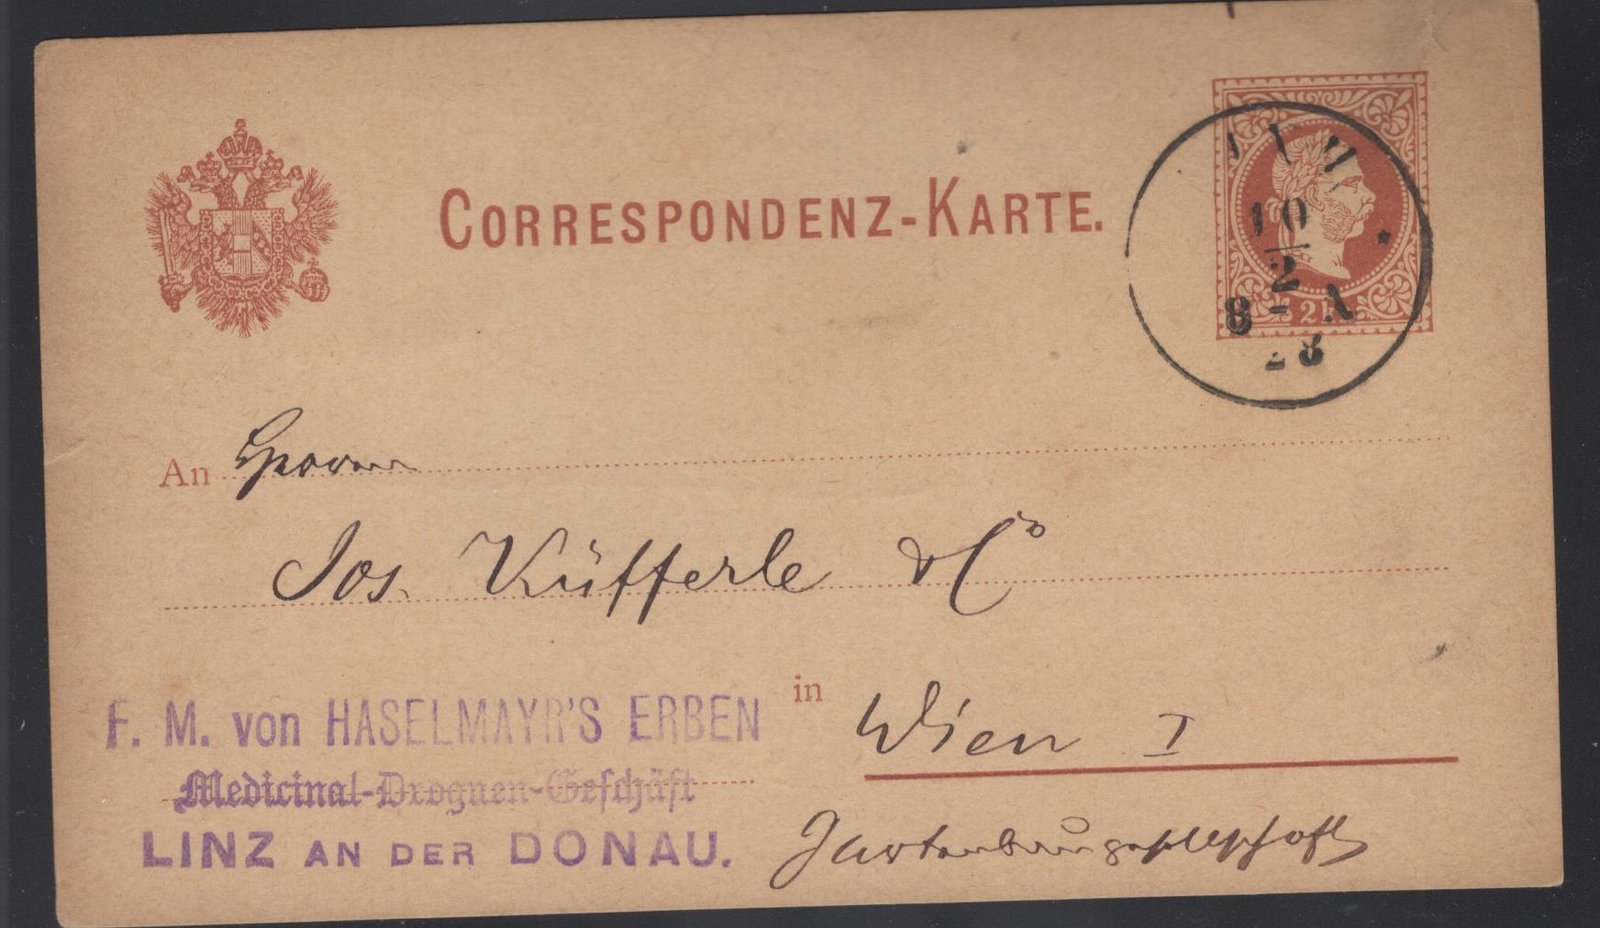 CORRESPONDENZ-KARTE.
10
2
8 - A
An Herrn
Jos. Küfferle & Co
in Wien I
F. M. von HASELMAYR'S ERBEN
Medicinal-Droguen-Geschäft
LINZ AN DER DONAU.